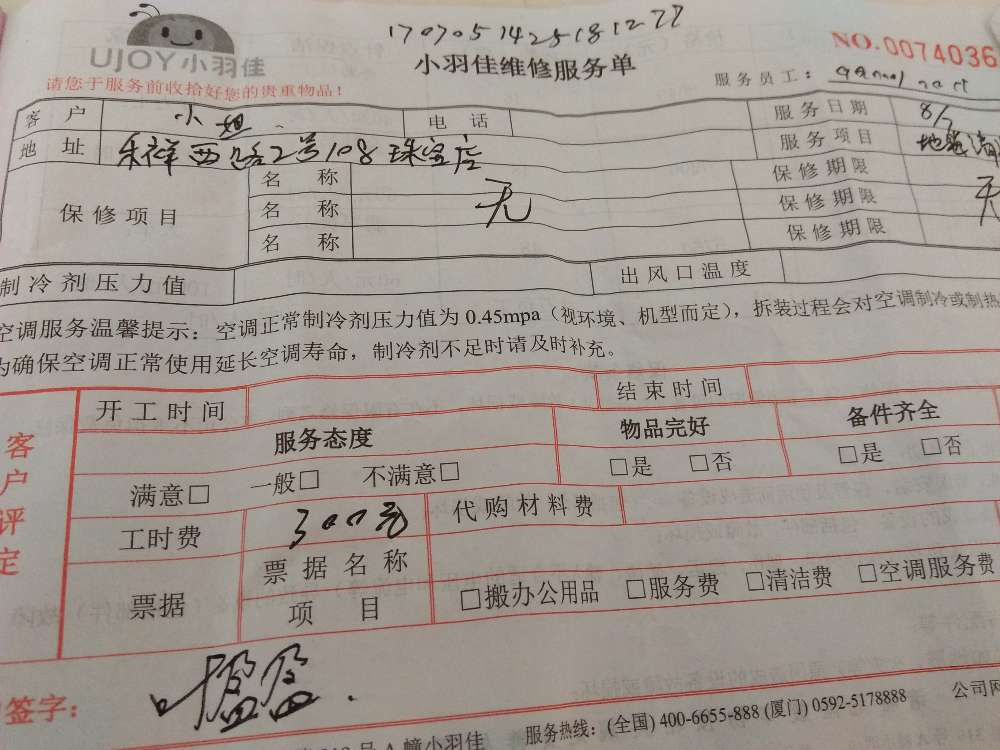 UJOY小羽佳
1707051425181277
小羽佳维修服务单
NO.0074036
请您于服务前收拾好您的贵重物品！
服务员工：
客 户 小姐 电 话 服务日期 8/7
地 址 禾祥西路2号108珠宝店 服务项目
保修项目 名 称 无 保修期限 无
名 称 保修期限
名 称 保修期限
制冷剂压力值 出风口温度
空调服务温馨提示：空调正常制冷剂压力值为 0.45mpa（视环境、机型而定），拆装过程会对空调制冷或制热
为确保空调正常使用延长空调寿命，制冷剂不足时请及时补充。
客户评定
开工时间 结束时间
服务态度 物品完好 备件齐全
满意□ 一般□ 不满意□ □是 □否 □是 □否
工时费 300元 代购材料费
票据 票据名称
项 目 □搬办公用品 □服务费 □清洁费 □空调服务费
签字： 叶盈盈
号 A 幢小羽佳 服务热线：(全国) 400-6655-888 (厦门) 0592-5178888 公司网